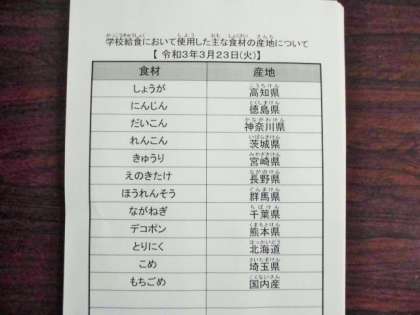 学校給食において使用した主な食材の産地について
【 令和3年3月23日(火)】
食材 産地
しょうが 高知県
にんじん 徳島県
だいこん 神奈川県
れんこん 茨城県
きゅうり 宮崎県
えのきたけ 長野県
ほうれんそう 群馬県
ながねぎ 千葉県
デコポン 熊本県
とりにく 北海道
こめ 埼玉県
もちごめ 国内産